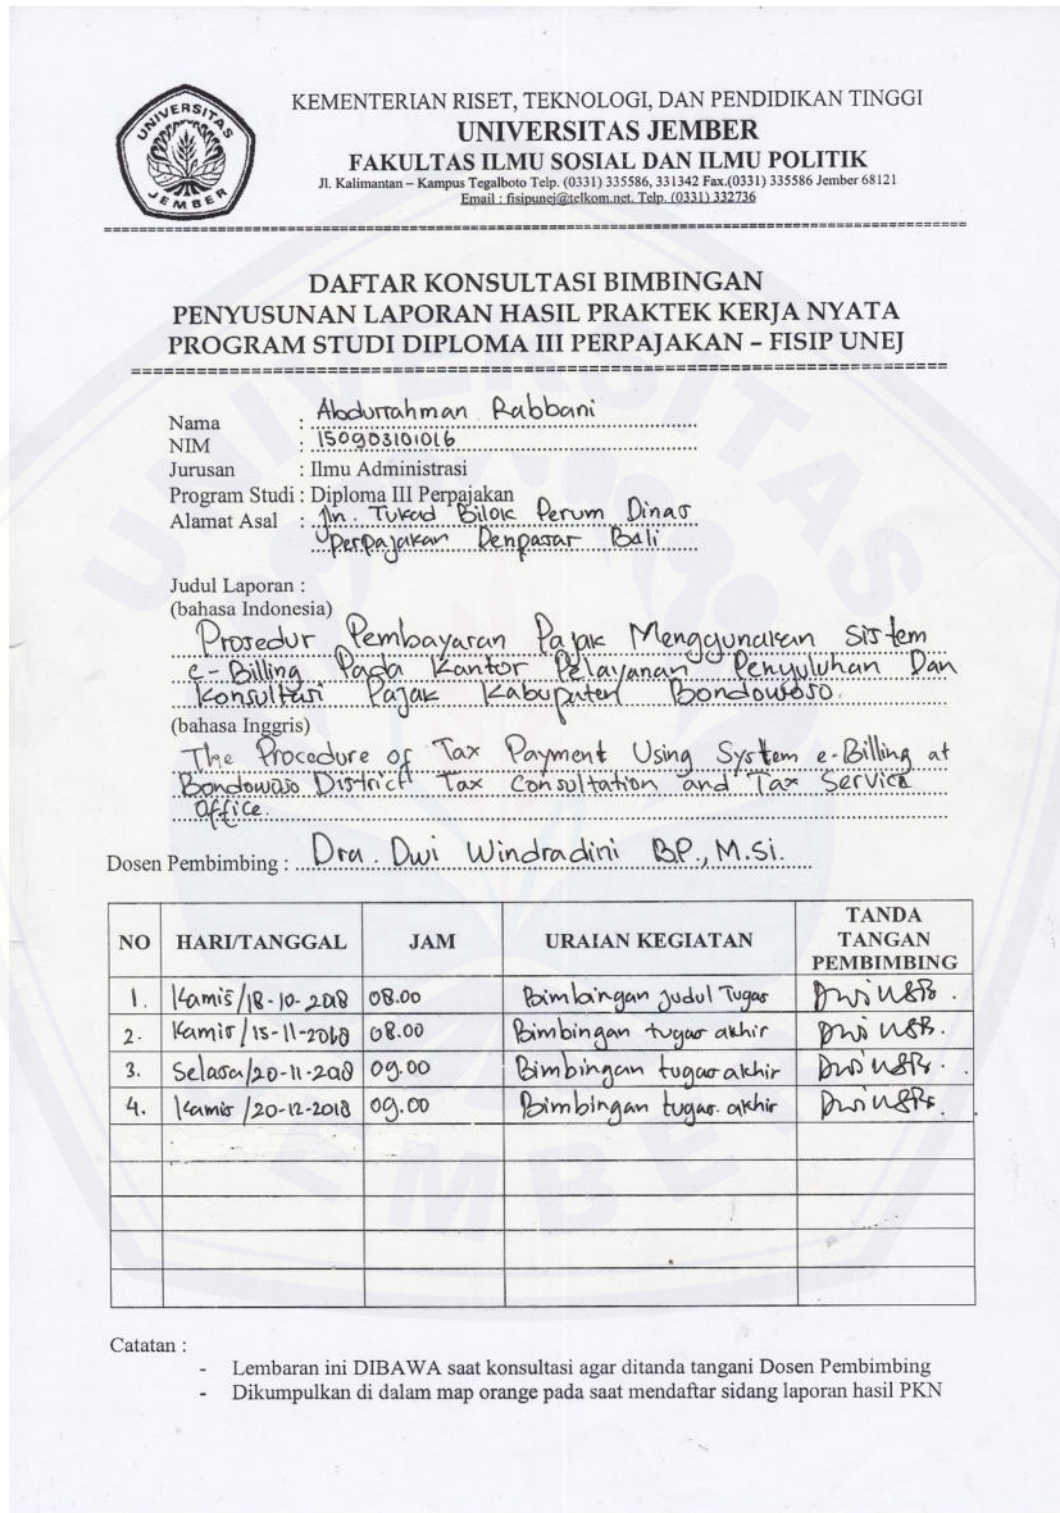 UNIVERSITAS
JEMBER
KEMENTERIAN RISET, TEKNOLOGI, DAN PENDIDIKAN TINGGI
UNIVERSITAS JEMBER
FAKULTAS ILMU SOSIAL DAN ILMU POLITIK
Jl. Kalimantan – Kampus Tegalboto Telp. (0331) 335586, 331342 Fax.(0331) 335586 Jember 68121
Email : fisipunej@telkom.net. Telp. (0331) 332736
DAFTAR KONSULTASI BIMBINGAN
PENYUSUNAN LAPORAN HASIL PRAKTEK KERJA NYATA
PROGRAM STUDI DIPLOMA III PERPAJAKAN – FISIP UNEJ
Nama : Abdurrahman Rabbani
NIM : 150903101016
Jurusan : Ilmu Administrasi
Program Studi : Diploma III Perpajakan
Alamat Asal : Jln. Tukad Bilok Perum Dinas
Perpajakan Denpasar Bali
Judul Laporan :
(bahasa Indonesia)
Prosedur Pembayaran Pajak Menggunakan Sistem
e-Billing Pada Kantor Pelayanan Penyuluhan Dan
Konsultasi Pajak Kabupaten Bondowoso.
(bahasa Inggris)
The Procedure of Tax Payment Using System e-Billing at
Bondowoso District Tax Consultation and Tax Service
Office.
Dosen Pembimbing : Dra. Dwi Windradini B.P., M.Si.
NO HARI/TANGGAL JAM URAIAN KEGIATAN TANDA TANGAN PEMBIMBING
1. Kamis/18-10-2018 08.00 Bimbingan judul Tugas
2. Kamis/15-11-2018 08.00 Bimbingan tugas akhir
3. Selasa/20-11-2018 09.00 Bimbingan tugas akhir
4. Kamis/20-12-2018 09.00 Bimbingan tugas akhir
Catatan :
- Lembaran ini DIBAWA saat konsultasi agar ditanda tangani Dosen Pembimbing
- Dikumpulkan di dalam map orange pada saat mendaftar sidang laporan hasil PKN